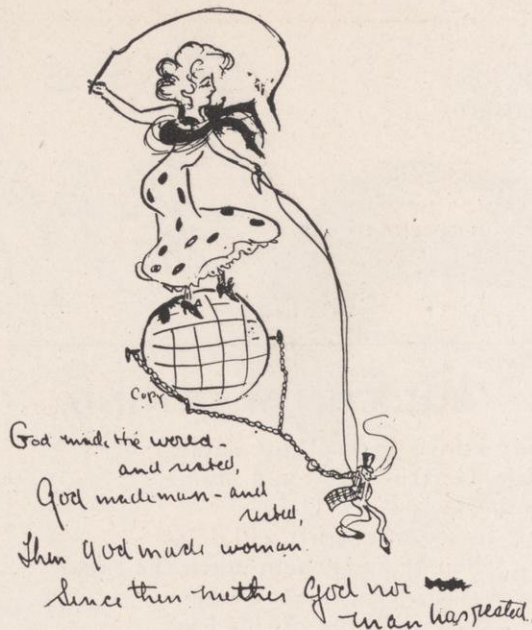 Copy
God made the world -
and rested,
God made man - and
rested,
Then God made woman.
Since then neither God nor
man has rested